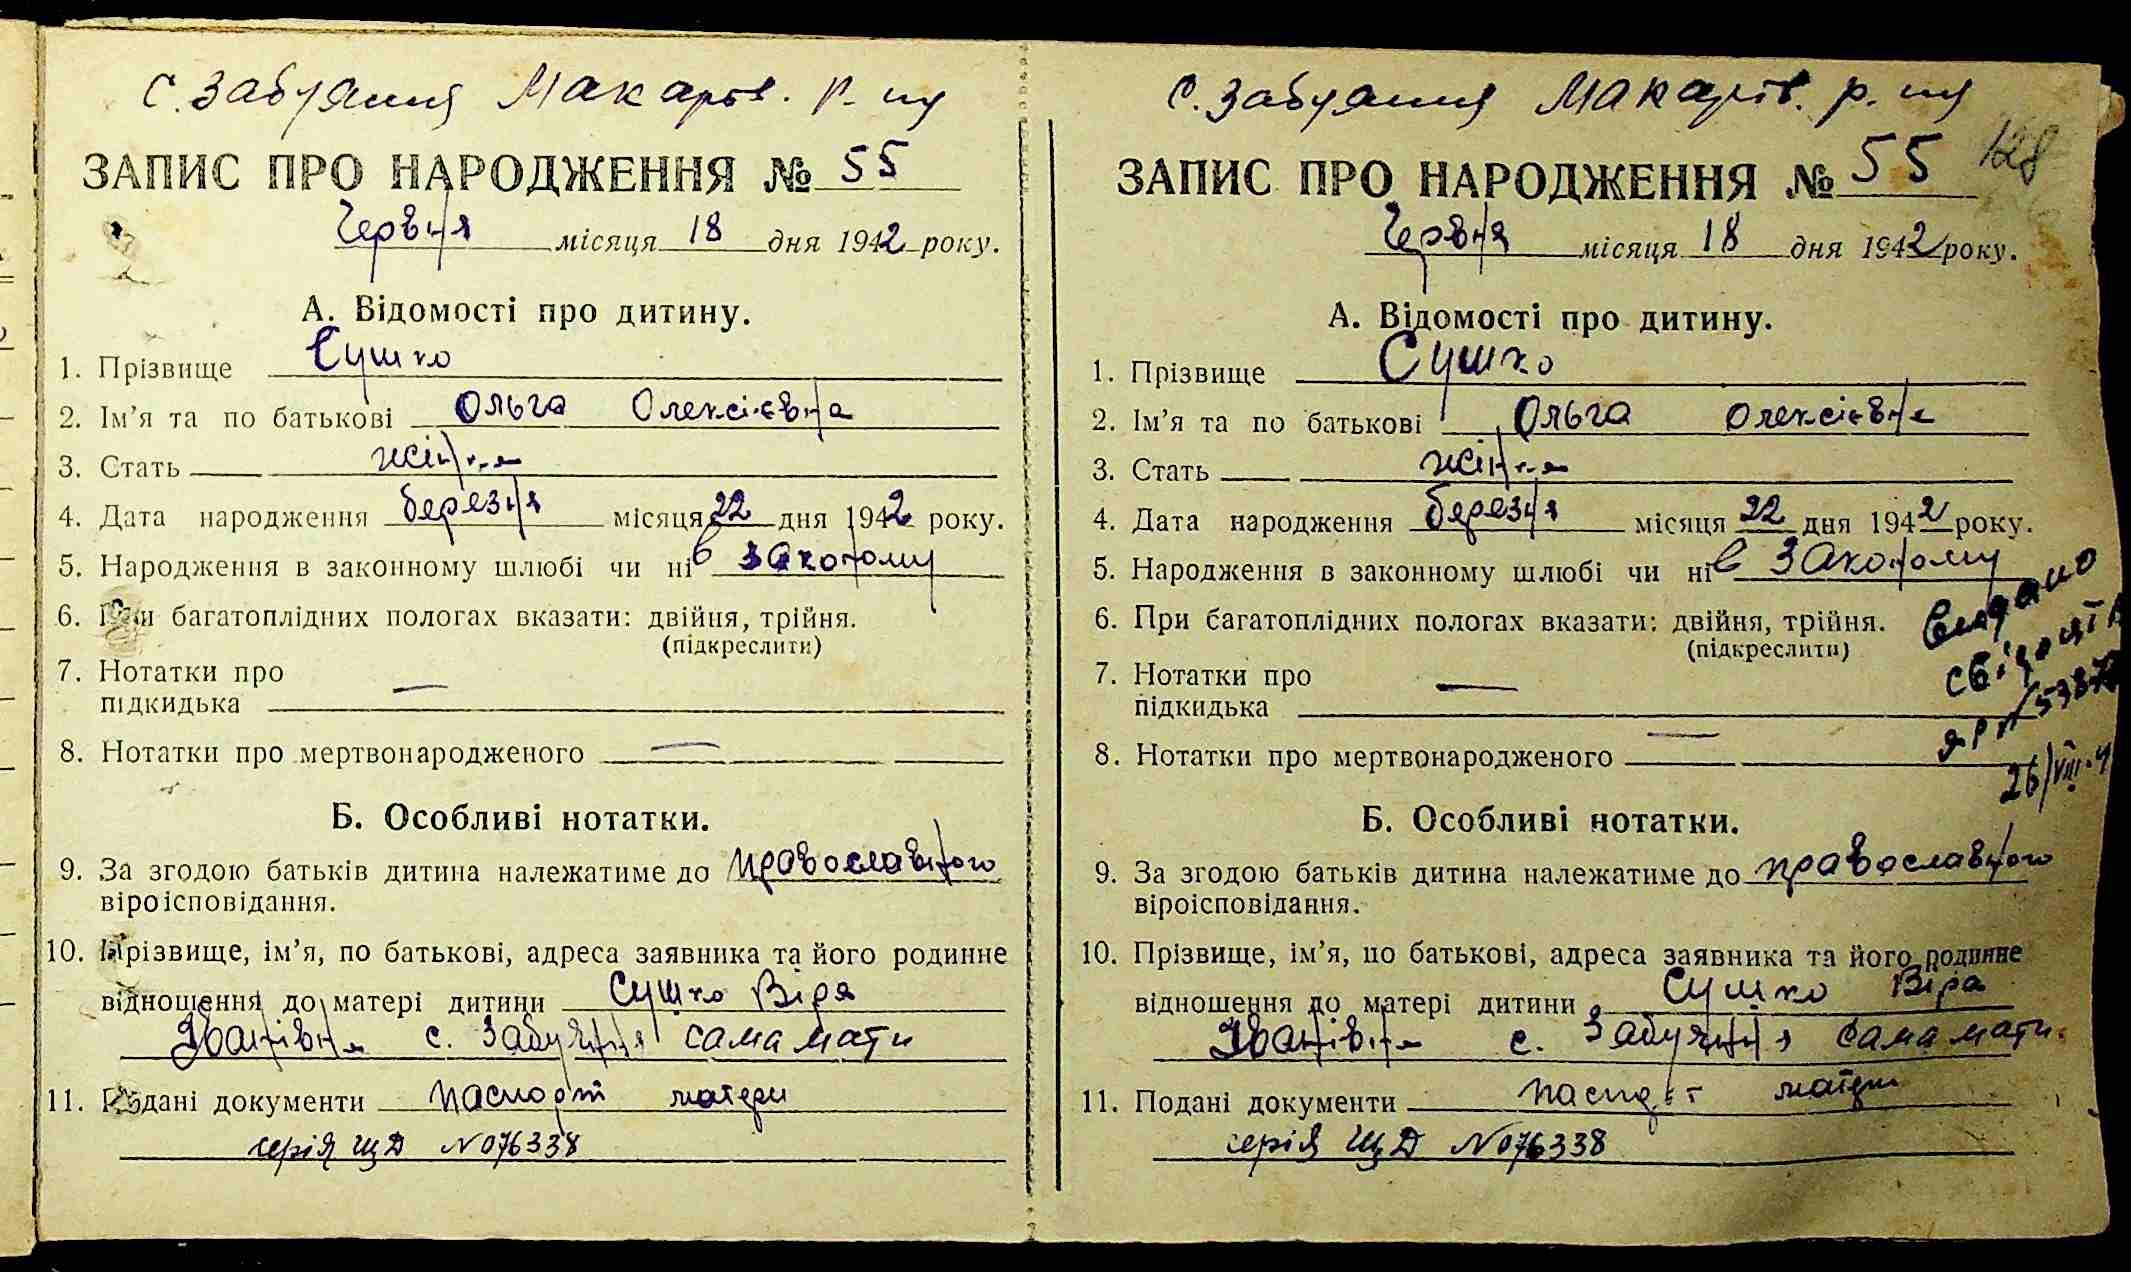 с. Забуяння Макарів. р-ну
ЗАПИС ПРО НАРОДЖЕННЯ № 55
Червня місяця 18 дня 1942 року.
А. Відомості про дитину.
1. Прізвище Сушко
2. Ім'я та по батькові Ольга Олексієвна
3. Стать жін.
4. Дата народження березня місяця 22 дня 1942 року.
5. Народження в законному шлюбі чи ні в законому
6. При багатоплідних пологах вказати: двійня, трійня.
(підкреслити)
7. Нотатки про —
підкидька
8. Нотатки про мертвонародженого —
Б. Особливі нотатки.
9. За згодою батьків дитина належатиме до православного
віроісповідання.
10. Прізвище, ім'я, по батькові, адреса заявника та його родинне
відношення до матері дитини Сушко Віра
Іванівна с. Забуяння сама мати
11. Подані документи паспорт матери
серія ЩД №076338
с. Забуяння Макарів. р. ну
128
ЗАПИС ПРО НАРОДЖЕННЯ № 55
Червня місяця 18 дня 1942 року.
А. Відомості про дитину.
1. Прізвище Сушко
2. Ім'я та по батькові Ольга Олексієвна
3. Стать жін.
4. Дата народження березня місяця 22 дня 1942 року.
5. Народження в законному шлюбі чи ні в законому
6. При багатоплідних пологах вказати: двійня, трійня.
(підкреслити)
7. Нотатки про —
підкидька
8. Нотатки про мертвонародженого —
Видано
26/VIII
Б. Особливі нотатки.
9. За згодою батьків дитина належатиме до православного
віроісповідання.
10. Прізвище, ім'я, по батькові, адреса заявника та його родинне
відношення до матері дитини Сушко Віра
Іванівна с. Забуяння сама мати.
11. Подані документи паспорт матери
серія ЩД №076338